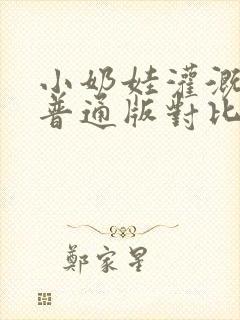 小奶娃灌溉
普通版對比
鄭家星